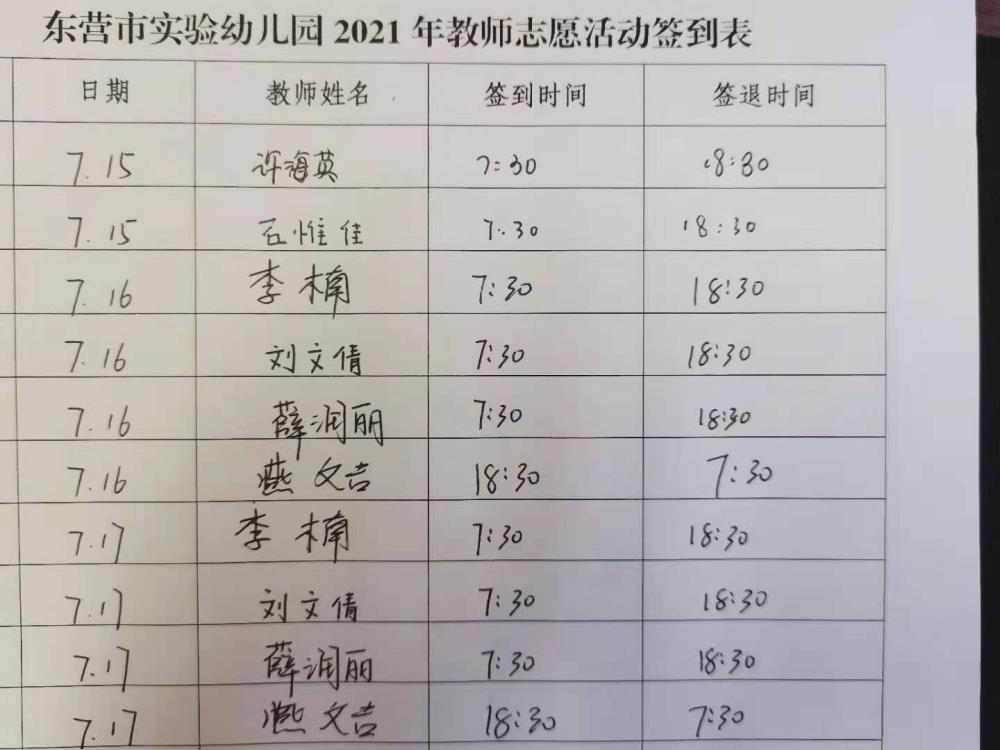 东营市实验幼儿园2021年教师志愿活动签到表
日期 教师姓名 签到时间 签退时间
7.15 许海英 7:30 18:30
7.15 石惟佳 7:30 18:30
7.16 李楠 7:30 18:30
7.16 刘文倩 7:30 18:30
7.16 薛润丽 7:30 18:30
7.16 燕文吉 18:30 7:30
7.17 李楠 7:30 18:30
7.17 刘文倩 7:30 18:30
7.17 薛润丽 7:30 18:30
7.17 燕文吉 18:30 7:30